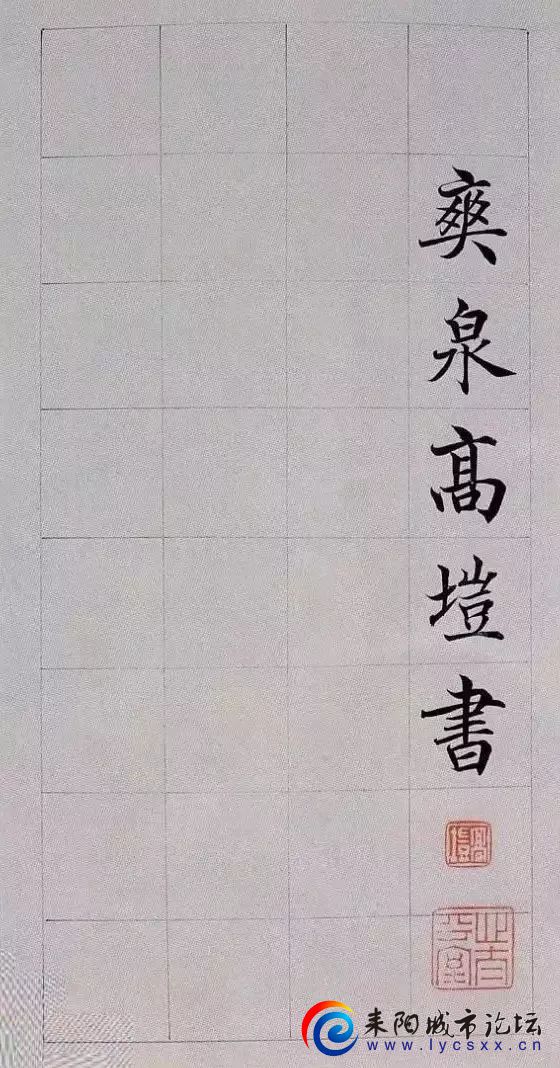 爽泉高塏書
高塏
耒阳城市论坛
www.lycsxx.cn